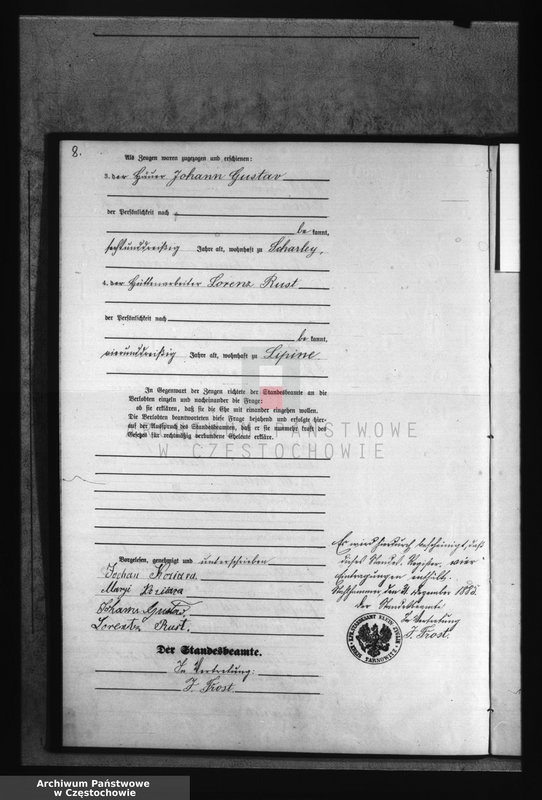 8.
Als Zeugen waren zugezogen und erschienen:
3. der Häuer Johann Gustav
der Persönlichkeit nach
be kannt,
sechsunddreißig Jahre alt, wohnhaft zu Scharley.
4. der Hüttenarbeiter Lorenz Rust
der Persönlichkeit nach
be kannt,
vierunddreißig Jahre alt, wohnhaft zu Lipine
In Gegenwart der Zeugen richtete der Standesbeamte an die
Verlobten einzeln und nacheinander die Frage:
ob sie erklären, daß sie die Ehe mit einander eingehen wollen.
Die Verlobten beantworteten diese Frage bejahend und erfolgte hier-
auf der Ausspruch des Standesbeamten, daß er sie nunmehr kraft des
Gesetzes für rechtmäßig verbundene Eheleute erkläre.
PAŃSTWOWE
W CZĘSTOCHOWIE
Vorgelesen, genehmigt und unterschrieben
Johann Gustav
Lorentz Rust.
Der Standesbeamte.
In Vertretung:
J. Frost
Es wird hierdurch bescheinigt, daß
dieses Standes-Register vier
Eintragungen enthält.
den Dezember 1885
der Standesbeamte
In Vertretung
J. Frost.
TARNOWITZ
Archiwum Państwowe
w Częstochowie